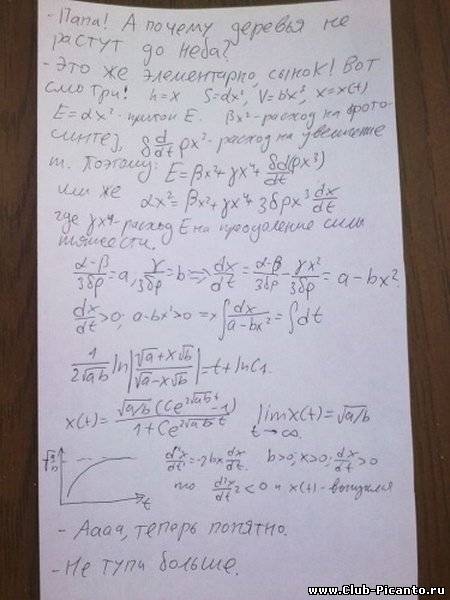 - Папа! А почему деревья не
растут до неба?
- Это же элементарно, сынок! Вот
смотри! h=x S=αx², V=bx³, x=x(t)
E=αx² - приход E. βx² - расход на фото-
синтез, δ d/dt ρx² - расход на увеличение
m. Поэтому: E=βx²+γx⁴+δd(ρx³)/dt
или же αx²=βx²+γx⁴+3δρx³ dx/dt
где γx⁴ - расход E на преодоление силы
тяжести.
(α-β)/3δρ=a, γ/3δρ=b => dx/dt=(α-β)/3δρ - γx²/3δρ = a-bx².
dx/dt>0; a-bx²>0 => ∫dx/(a-bx²)=∫dt
1/(2√ab) ln|(√a+x√b)/(√a-x√b)|=t+lnC₁.
x(t)=√a/b (Ce^(2√ab t)-1)/(1+Ce^(2√ab t)) lim x(t)=√a/b
t→∞
√a/b d²x/dt²=-2bx dx/dt. b>0; x>0; dx/dt>0
то d²x/dt²<0 и x(t) - выпуклая
t
- Аааа, теперь понятно.
- Не тупи больше.
www.Club-Picanto.ru